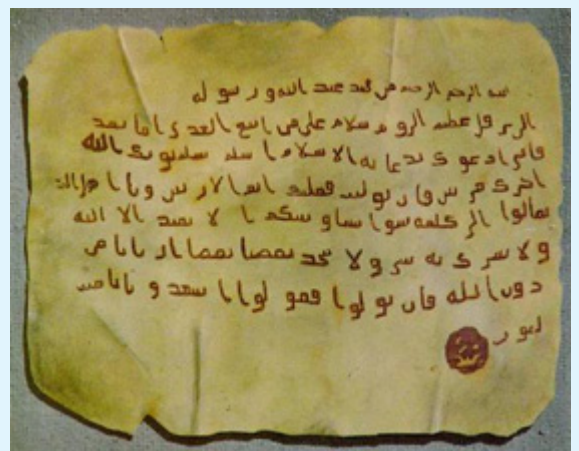 بسم الله الرحمن الرحيم من محمد عبد الله ورسوله
الى هرقل عظيم الروم سلام على من اتبع الهدى اما بعد
فانى ادعوك بدعاية الاسلام اسلم تسلم يوتك الله
اجرك مرتين فان توليت فعليك اثم الاريسيين ويا اهل الكتاب
تعالوا الى كلمة سوا بيننا وبينكم الا نعبد الا الله
ولا نشرك به شيا ولا يتخذ بعضنا بعضا اربابا من
دون الله فان تولوا فقولوا اشهدوا بانا مسلمون